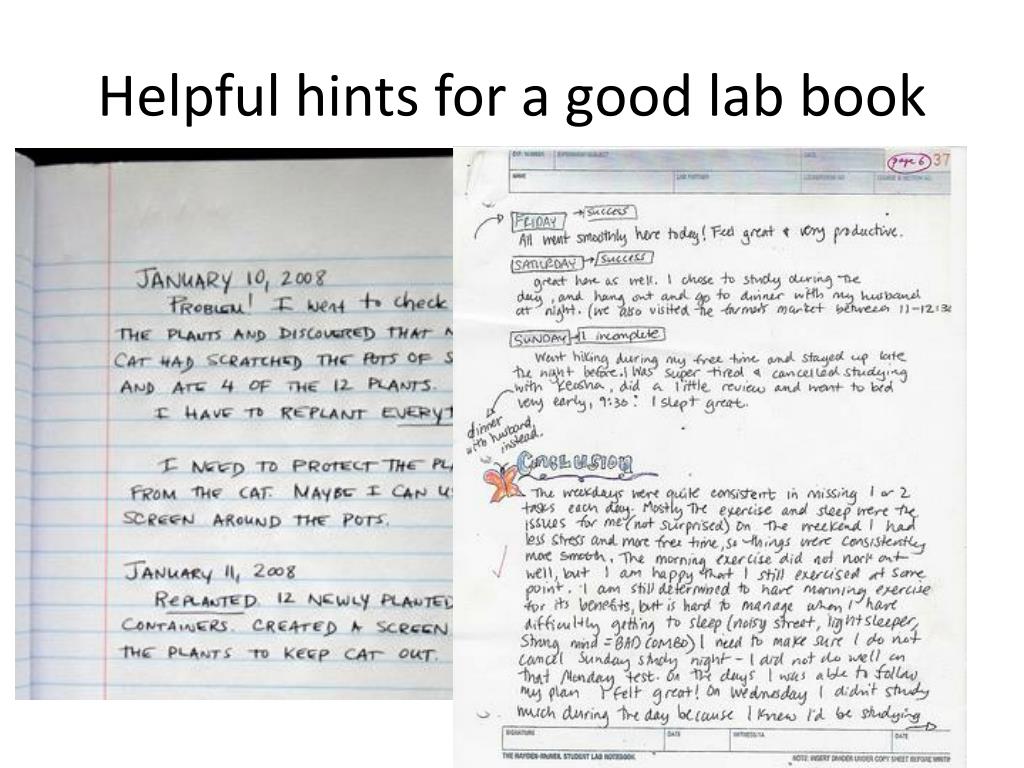 Helpful hints for a good lab book
JANUARY 10, 2008
PROBLEM! I went to check
THE PLANTS AND DISCOVERED THAT
CAT HAD SCRATCHED THE POTS OF S
AND ATE 4 OF THE 12 PLANTS.
I HAVE TO REPLANT EVERYT
I NEED TO PROTECT THE PL
FROM THE CAT. MAYBE I CAN U
SCREEN AROUND THE POTS.
JANUARY 11, 2008
REPLANTED 12 NEWLY PLANTED
CONTAINERS. CREATED A SCREEN
THE PLANTS TO KEEP CAT OUT.
EXP. NUMBER EXPERIMENT/SUBJECT DATE page 6 37
NAME LAB PARTNER LOCKER/DESK NO. COURSE & SECTION NO.
FRIDAY → SUCCESS
All went smoothly here today! Feel great & very productive.
SATURDAY → SUCCESS
great here as well. I chose to study during the
day, and hang out and go to dinner with my husband
at night. (we also visited the farmers market between 11-12:30
SUNDAY → 1 incomplete
Went hiking during my free time and stayed up late
the night before. I was super tired & cancelled studying
with Keosha, did a little review and went to bed
very early, 9:30. I slept great.
dinner
with husband
instead.
CONCLUSION
The weekdays were quite consistent in missing 1 or 2
tasks each day. Mostly the exercise and sleep were the
issues for me (not surprised) On the weekend I had
less stress and more free time, so things were consistently
more smooth. The morning exercise did not work out
well, but I am happy that I still exercised at some
point. I am still determined to have morning exercise
for its benefits, but is hard to manage when I have
difficultly getting to sleep (noisy street, light sleeper,
strong mind = BAD COMBO) I need to make sure I do not
cancel Sunday study night - I did not do well on
that Monday test. On the days I was able to follow
my plan I felt great! On Wednesday I didn't study
much during the day because I knew I'd be studying
SIGNATURE DATE WITNESS/TA DATE
THE HAYDEN-McNEIL STUDENT LAB NOTEBOOK NOTE: INSERT DIVIDER UNDER COPY SHEET BEFORE WRITIN